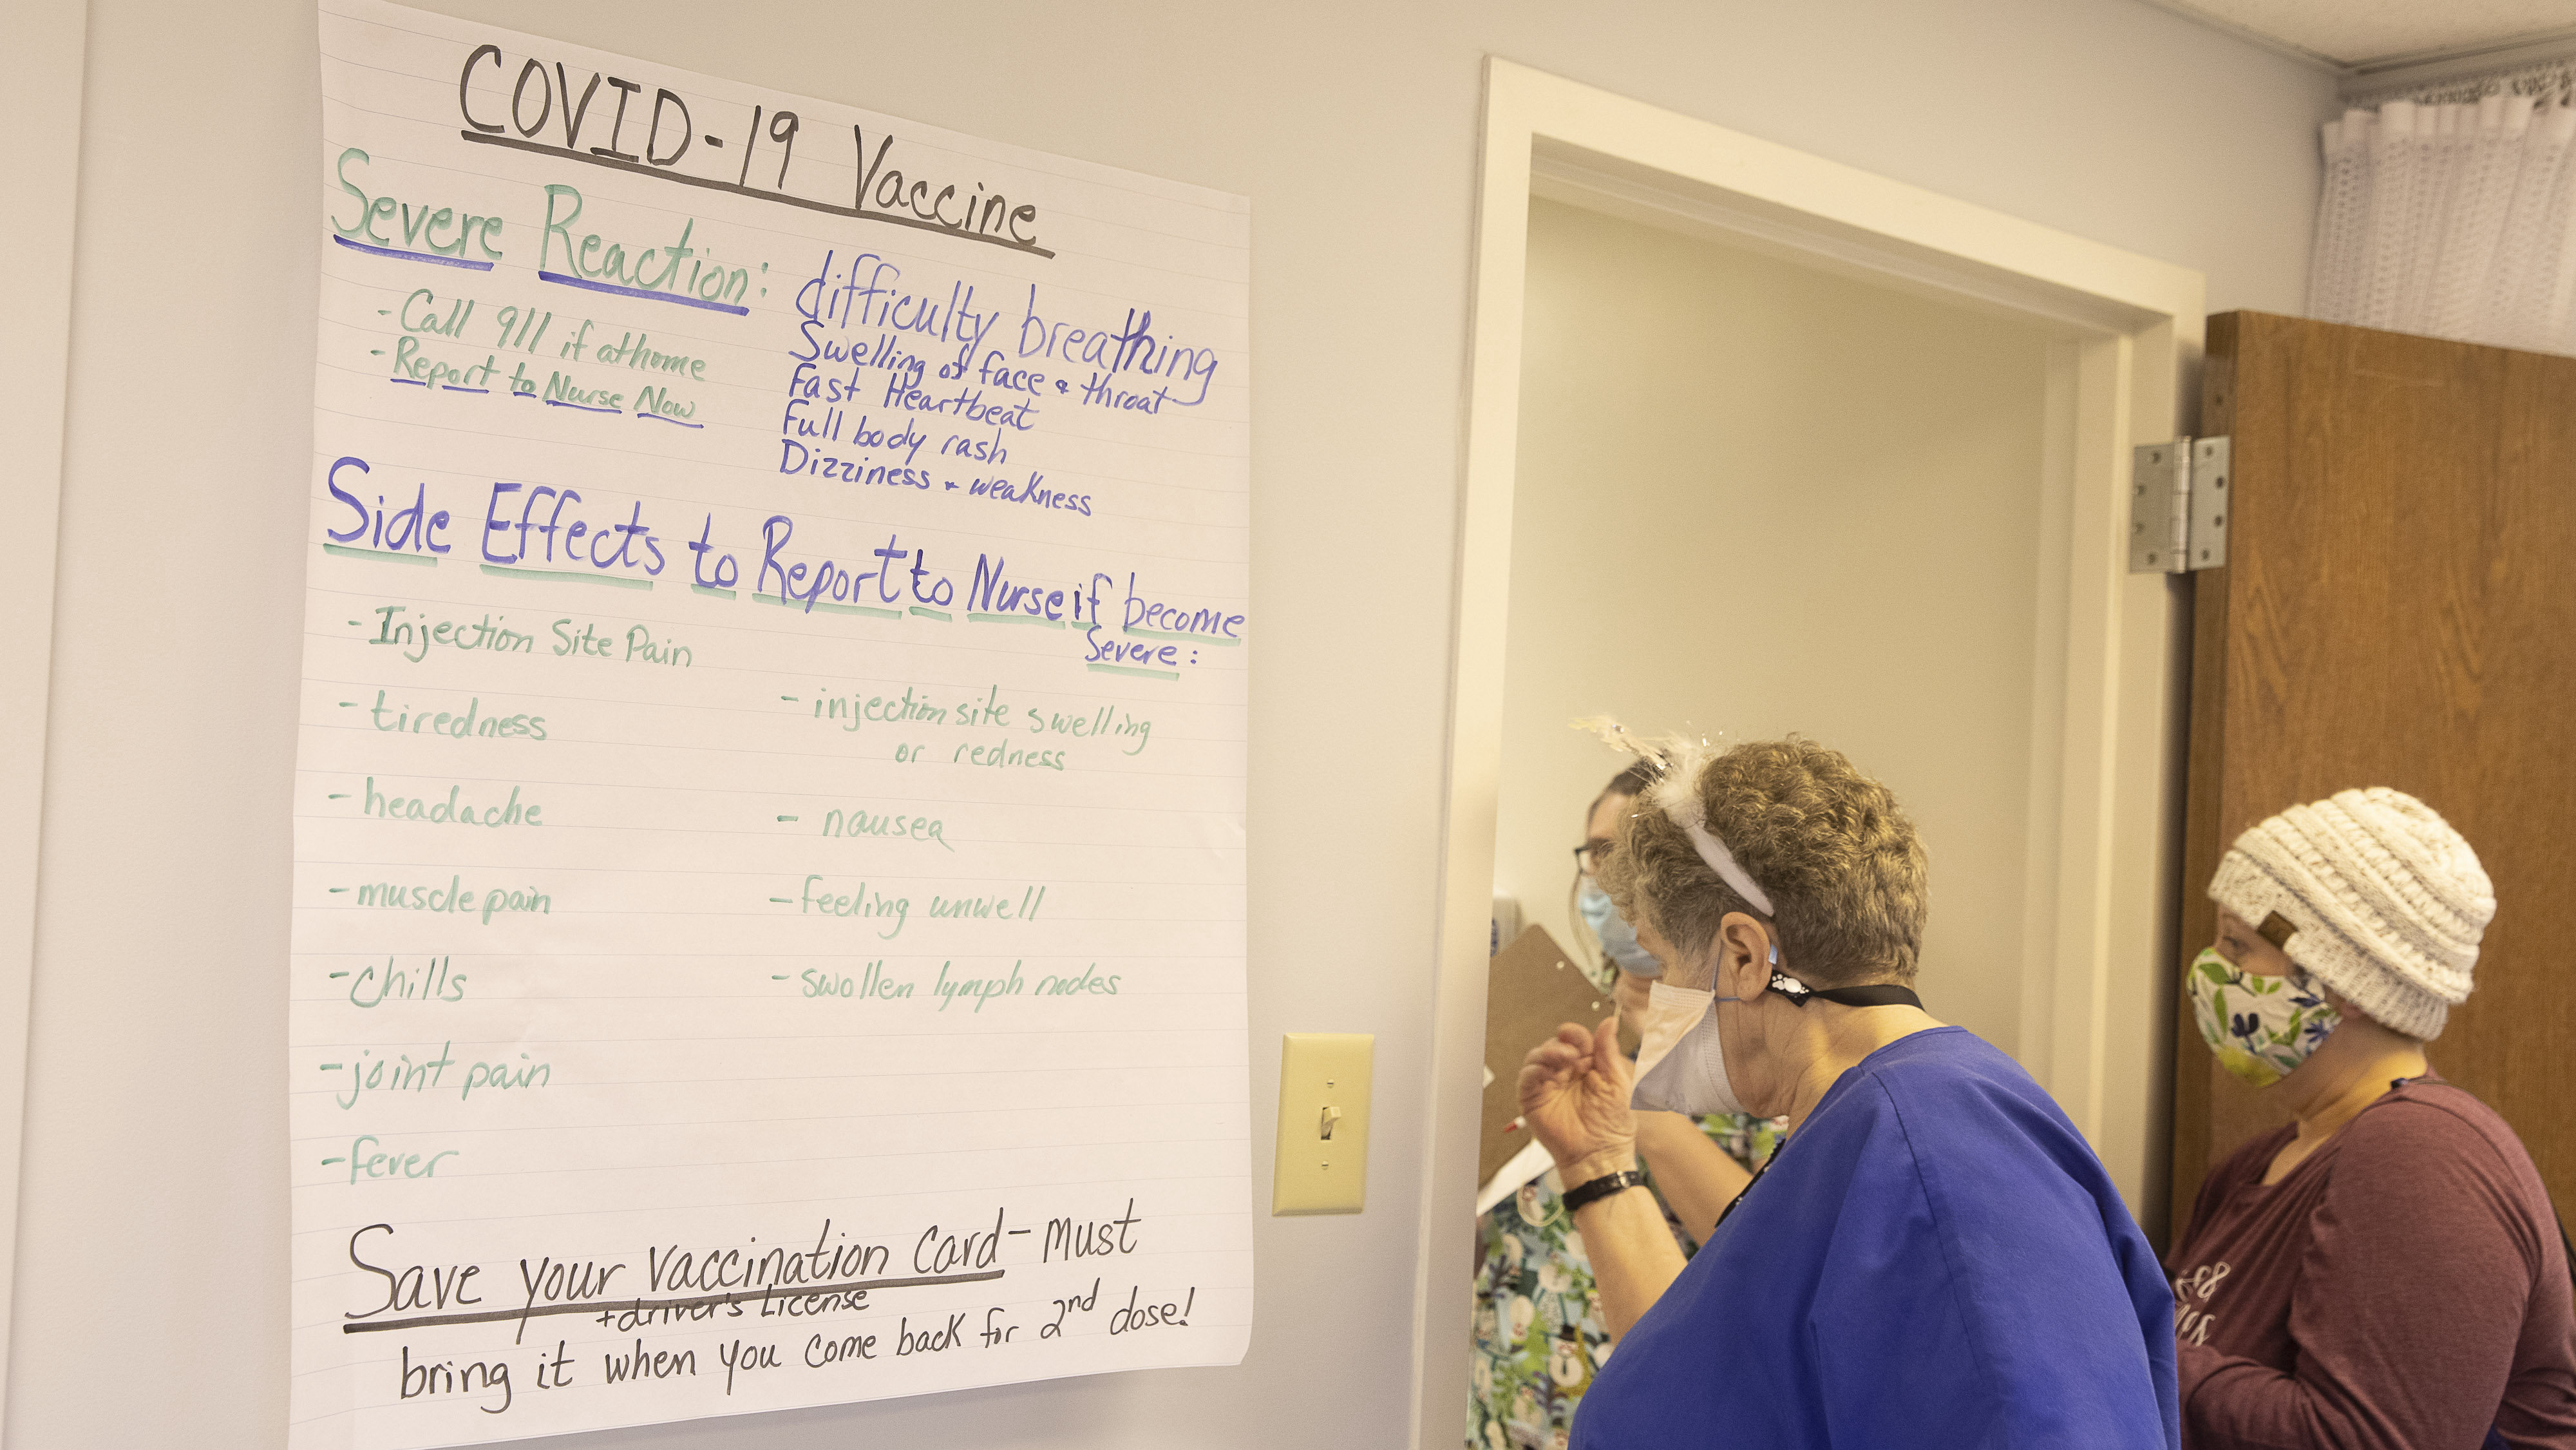 COVID-19 Vaccine
Severe Reaction:
- Call 911 if at home
- Report to Nurse Now
difficulty breathing
Swelling of face & throat
Fast Heartbeat
Full body rash
Dizziness & weakness
Side Effects to Report to Nurse if become
Severe:
- Injection Site Pain
- tiredness
- headache
- muscle pain
- chills
- joint pain
- fever
- injection site swelling
or redness
- nausea
- feeling unwell
- swollen lymph nodes
Save your vaccination card - must
+ driver's License
bring it when you come back for 2nd dose!